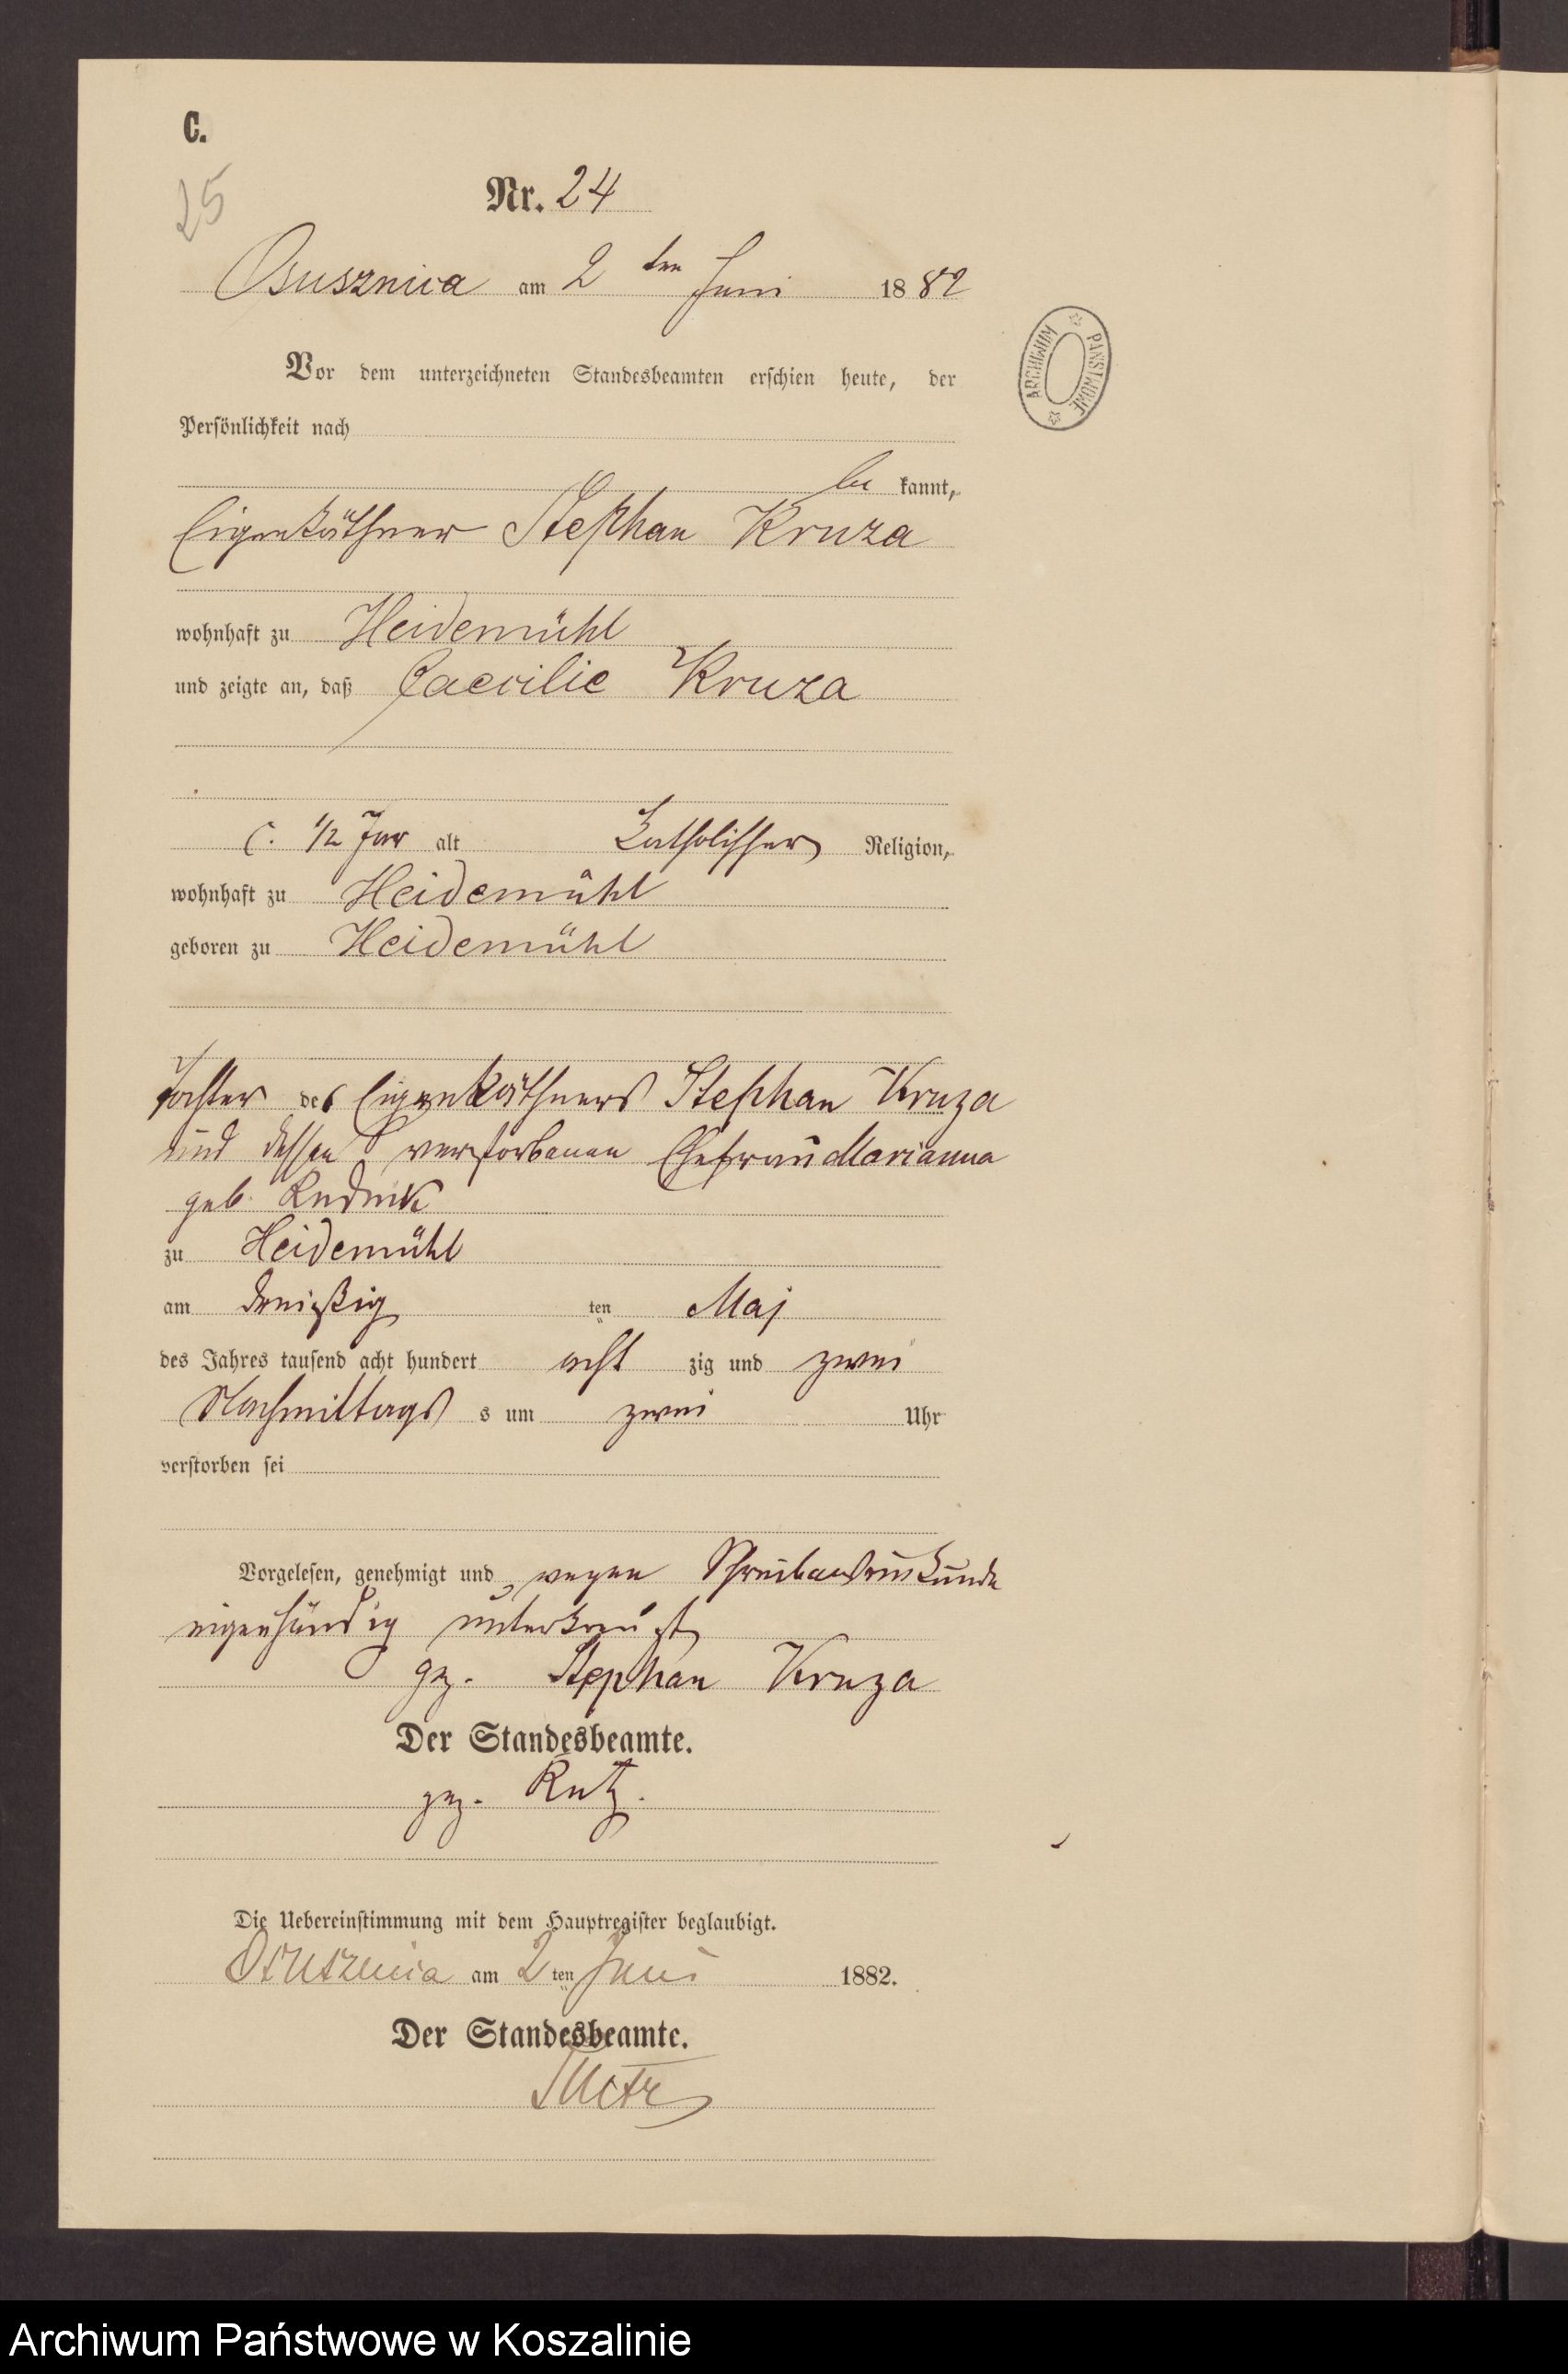 C.
25
Nr. 24
Osusznica am 2 ten Juni 1882
Vor dem unterzeichneten Standesbeamten erschien heute, der
Persönlichkeit nach
be kannt,
Eigenkäthner Stephan Kruza
wohnhaft zu Heidemühl
und zeigte an, daß Caecilie Kruza
C. 1/2 Jar alt Katholischer Religion,
wohnhaft zu Heidemühl
geboren zu Heidemühl
Tochter des Eigenkäthners Stephan Kruza
und dessen verstorbenen Ehefrau Marianna
geb. Rudnik
zu Heidemühl
am dreißig ten Maj
des Jahres tausend acht hundert acht zig und zwei
Nachmittags s um zwei Uhr
verstorben sei
Vorgelesen, genehmigt und wegen Schreibensunkunde
eigenhändig unterkreuzt
gez. Stephan Kruza
Der Standesbeamte.
gez. Rutz.
Die Uebereinstimmung mit dem Hauptregister beglaubigt.
Osusznica am 2 ten Juni 1882.
Der Standesbeamte.
ARCHIWUM PAŃSTWOWE
Archiwum Państwowe w Koszalinie